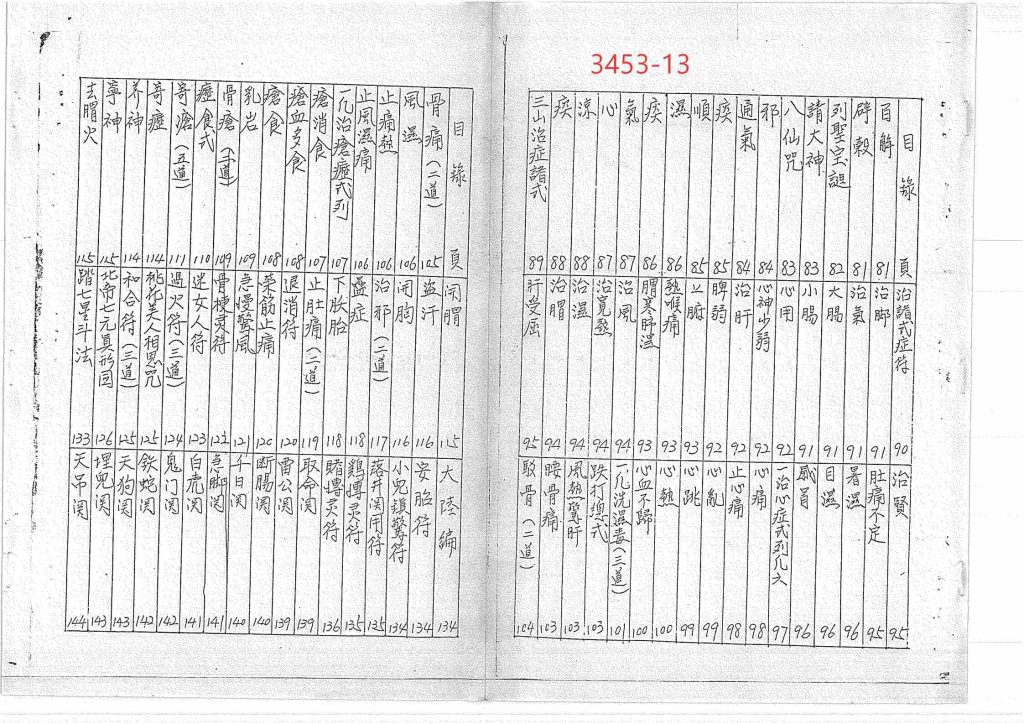 3453-13
目錄 頁
百解 81
辟穀 81
列聖宝誥 82
請大神 83
八仙咒 83
邪 84
通氣 84
疾 85
順 85
濕 86
疾 86
氣 87
心 87
涼 88
疾 88
三山治症諸式 89
治諸式症符 90
治脚 91
治氣 91
大腸 91
小腸 91
心用 92
心神少弱 92
治肝 92
脾弱 92
上腑 93
熱喉痛 93
胃寒肺濕 93
治風 94
治寬熱 94
治濕 94
治胃 94
肝受屈 95
治賢 95
肚痛不定 95
暑濕 96
目濕 96
一治心症式列几六 97
心痛 98
止心痛 98
心亂 99
心跳 99
心熱 100
心血不歸 100
一几洗濕毒(三道) 101
跌打總式 103
風熱驚肝 103
腰骨痛 103
駁骨(二道) 104
目錄 頁
骨痛(二道) 105
風濕 106
止痛熱 106
止風濕痛 106
一几治瘡症式列 107
瘡消食 107
瘡血多食 108
瘡食 108
乳岩 109
骨瘡(二道) 109
症食式 110
奇瘡(五道) 111
奇症 114
养神 114
寧神 115
去胃火 115
開胃 115
盗汗 116
開胸 116
治邪(二道) 117
蠱症 118
下胅胎 118
止肚痛(二道) 119
退消符 120
菜筋止痛 120
急慢驚風 121
骨梗灵符 122
迷女人符 123
過火符(三道) 124
桃花美人相思咒 125
和合符(三道) 125
北帝七元真形图 126
踏七星斗法 133
大陸編 134
安胎符 134
小兒鎮驚符 134
落井関用符 135
鷄摶灵符 135
賭摶灵符 136
取命関 139
雷公関 139
断腸関 140
千日関 140
急脚関 141
白虎関 141
鬼门関 142
鉄蛇関 142
天狗関 143
埋兒関 143
天吊関 144